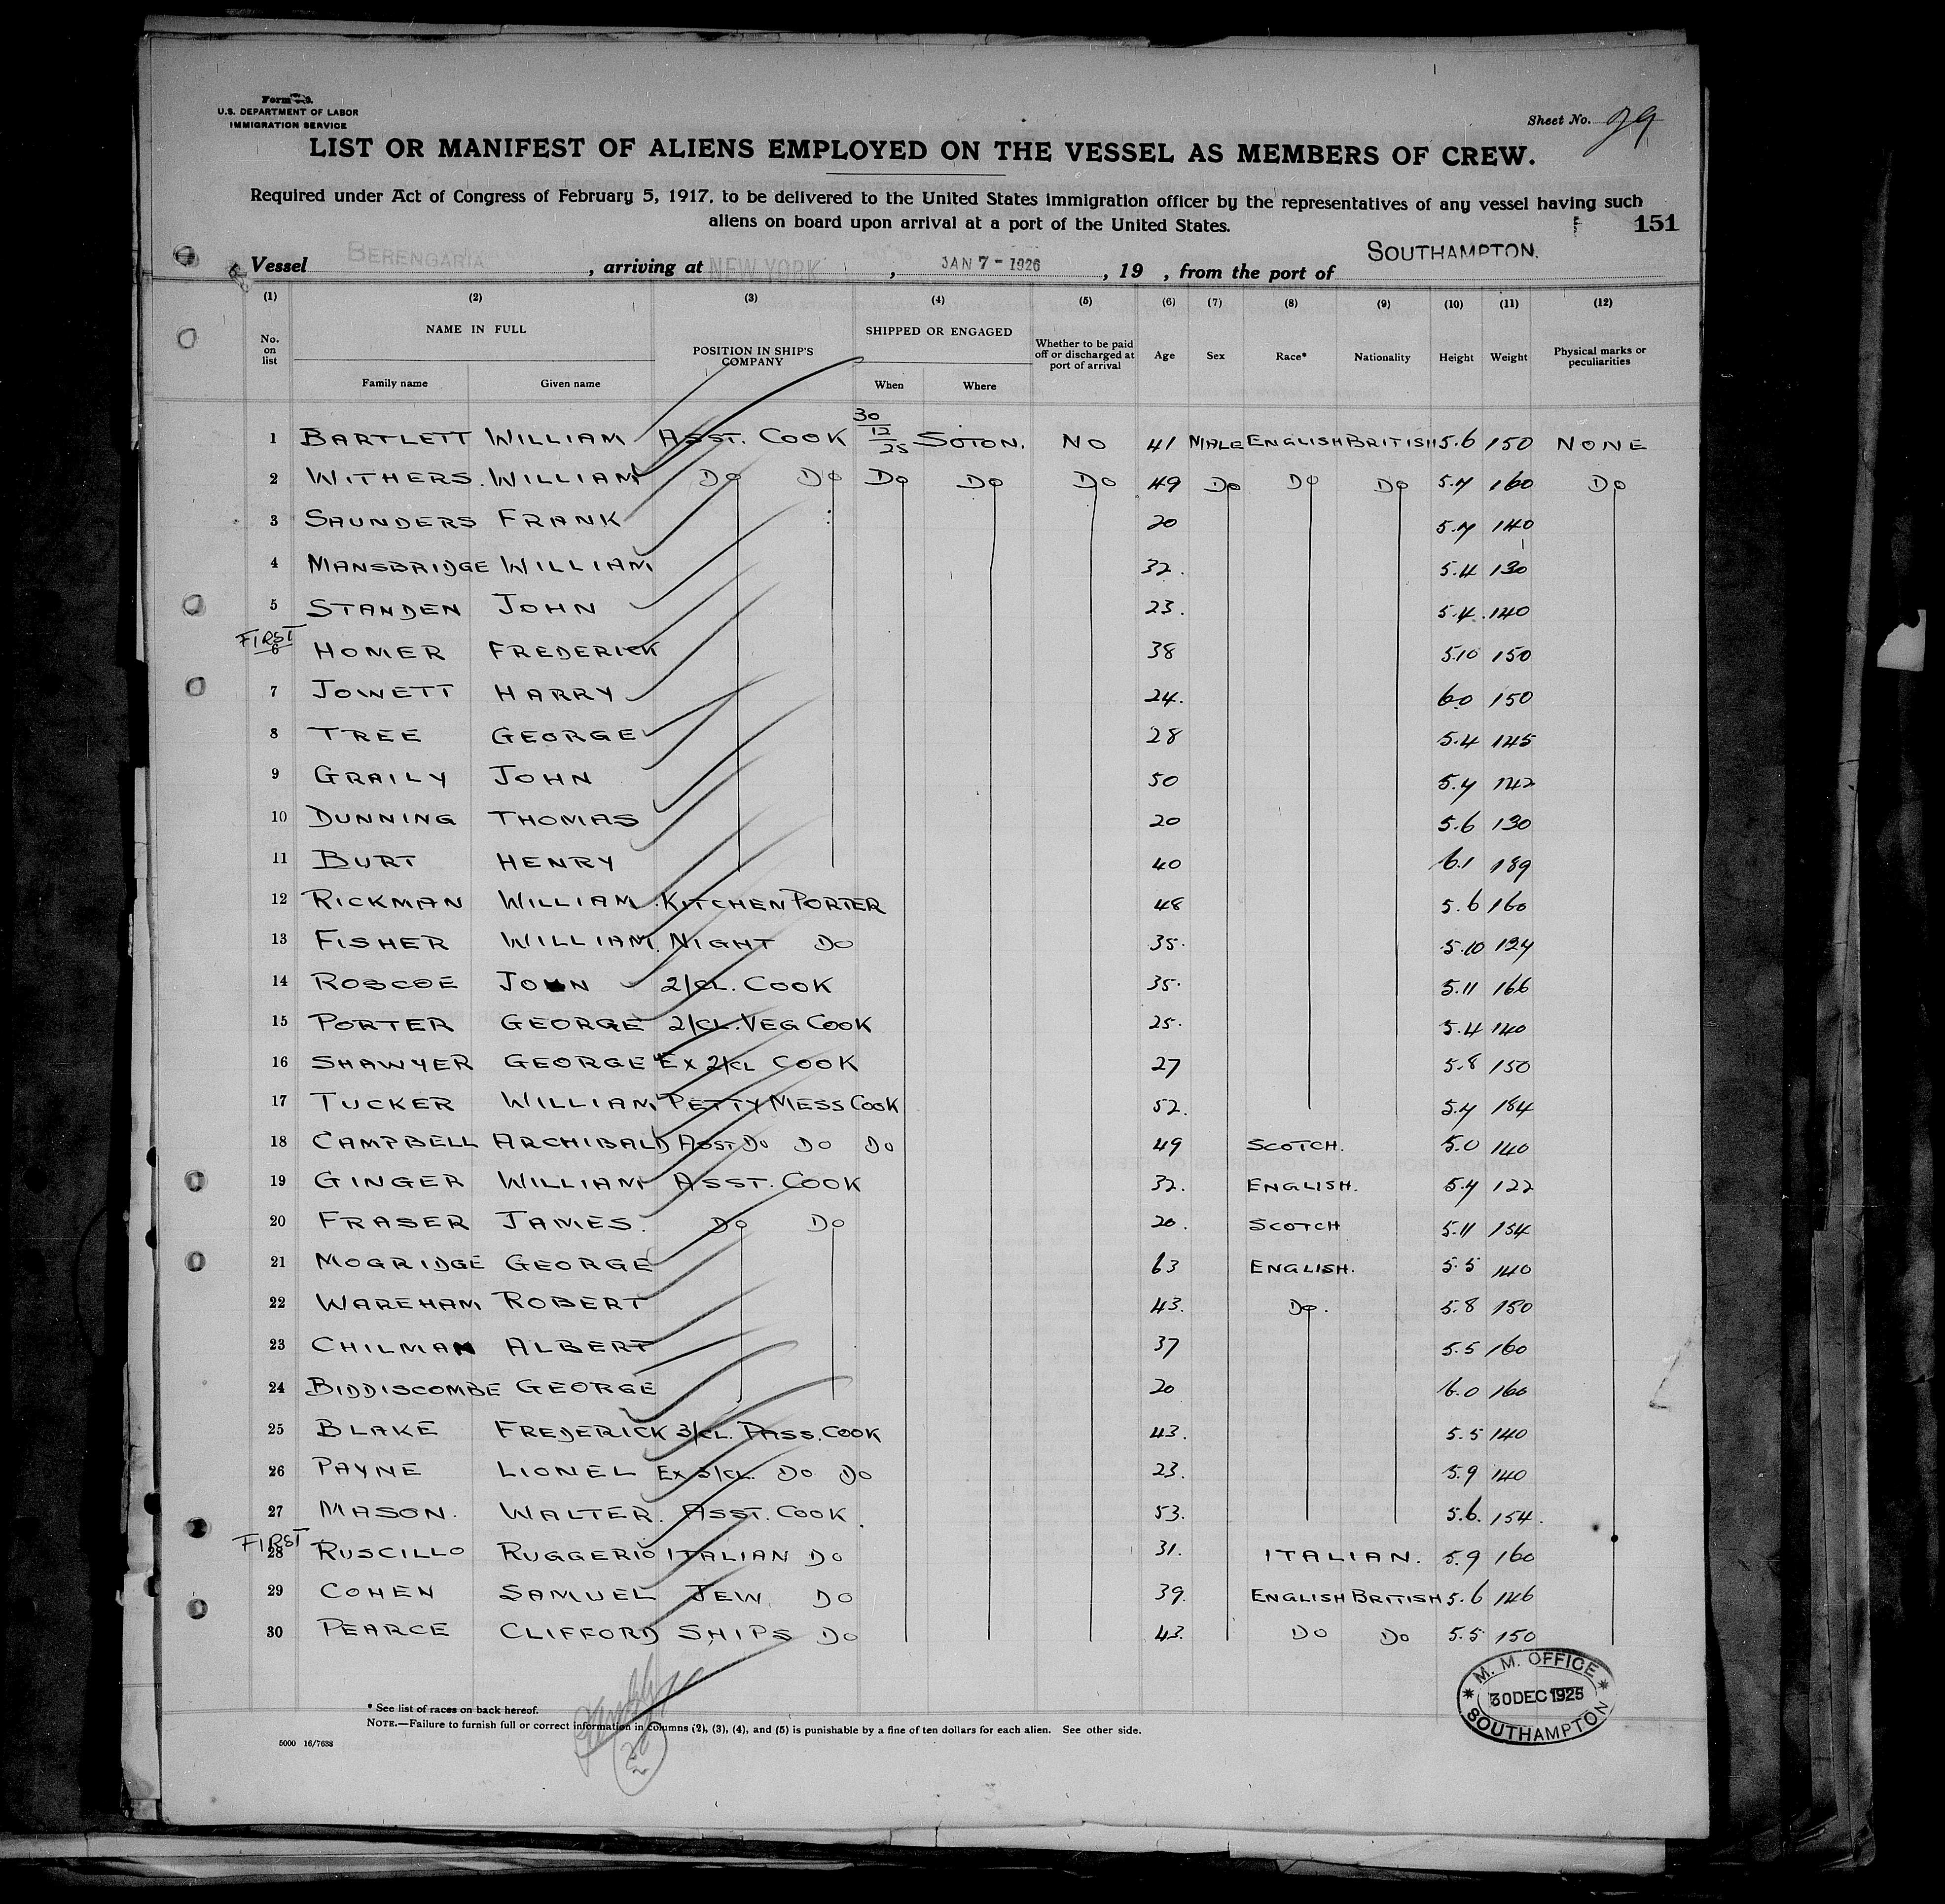 Form
U.S. DEPARTMENT OF LABOR
IMMIGRATION SERVICE
Sheet No. 29
LIST OR MANIFEST OF ALIENS EMPLOYED ON THE VESSEL AS MEMBERS OF CREW.
Required under Act of Congress of February 5, 1917, to be delivered to the United States immigration officer by the representatives of any vessel having such
aliens on board upon arrival at a port of the United States.
151
Vessel BERENGARIA, arriving at NEW YORK, JAN 7 - 1926, 19 , from the port of SOUTHAMPTON.
(1) (2) (3) (4) (5) (6) (7) (8) (9) (10) (11) (12)
No. on list NAME IN FULL POSITION IN SHIP'S COMPANY SHIPPED OR ENGAGED Whether to be paid off or discharged at port of arrival Age Sex Race* Nationality Height Weight Physical marks or peculiarities
Family name Given name When Where
1 BARTLETT WILLIAM ASST. COOK 30/12/25 SOTON. NO 41 MALE ENGLISH BRITISH 5.6 150 NONE
2 WITHERS. WILLIAM DO DO DO DO DO 49 DO DO DO 5.7 160 DO
3 SAUNDERS FRANK 20 5.7 140
4 MANSBRIDGE WILLIAM 32. 5.4 130
5 STANDEN JOHN 23. 5.4 140
FIRST
6 HOMER FREDERICK 38 5.10 150
7 JOWETT HARRY 24. 6.0 150
8 TREE GEORGE 28 5.4 145
9 GRAILY JOHN 50 5.7 142
10 DUNNING THOMAS 20 5.6 130
11 BURT HENRY 40 6.1 189
12 RICKMAN WILLIAM KITCHEN PORTER 48 5.6 160
13 FISHER WILLIAM. NIGHT DO 35. 5.10
14 ROSCOE JOHN 2/CL. COOK 35. 5.11 166
15 PORTER GEORGE 2/CL. VEG COOK 25. 5.4 140
16 SHAWYER GEORGE EX 2/CL COOK 27 5.8 150
17 TUCKER WILLIAM PETTY MESS COOK 52. 5.7 184
18 CAMPBELL ARCHIBALD ASST DO DO DO 49 SCOTCH. 5.0 140
19 GINGER WILLIAM ASST. COOK 32. ENGLISH. 5.7 122
20 FRASER JAMES. DO DO 20. SCOTCH 5.11 154
21 MOGRIDGE GEORGE 63 ENGLISH. 5.5 140
22 WAREHAM ROBERT 43. DO. 5.8 150
23 CHILMAN ALBERT 37 5.5 160
24 BIDDISCOMBE GEORGE 20 6.0 160
25 BLAKE FREDERICK 3/CL. PASS. COOK 43. 5.5 140
26 PAYNE LIONEL EX 3/CL. DO DO 23. 5.9 140
27 MASON. WALTER. ASST. COOK. 53. 5.6. 154.
FIRST
28 RUSCILLO RUGGERIO ITALIAN DO 31. ITALIAN. 5.9 160
29 COHEN SAMUEL JEW DO 39. ENGLISH BRITISH 5.6 146
30 PEARCE CLIFFORD SHIPS DO 43. DO DO 5.5 150
M. M. OFFICE
30 DEC 1925
SOUTHAMPTON
* See list of races on back hereof.
NOTE.—Failure to furnish full or correct information in columns (2), (3), (4), and (5) is punishable by a fine of ten dollars for each alien. See other side.
5000 16/7638